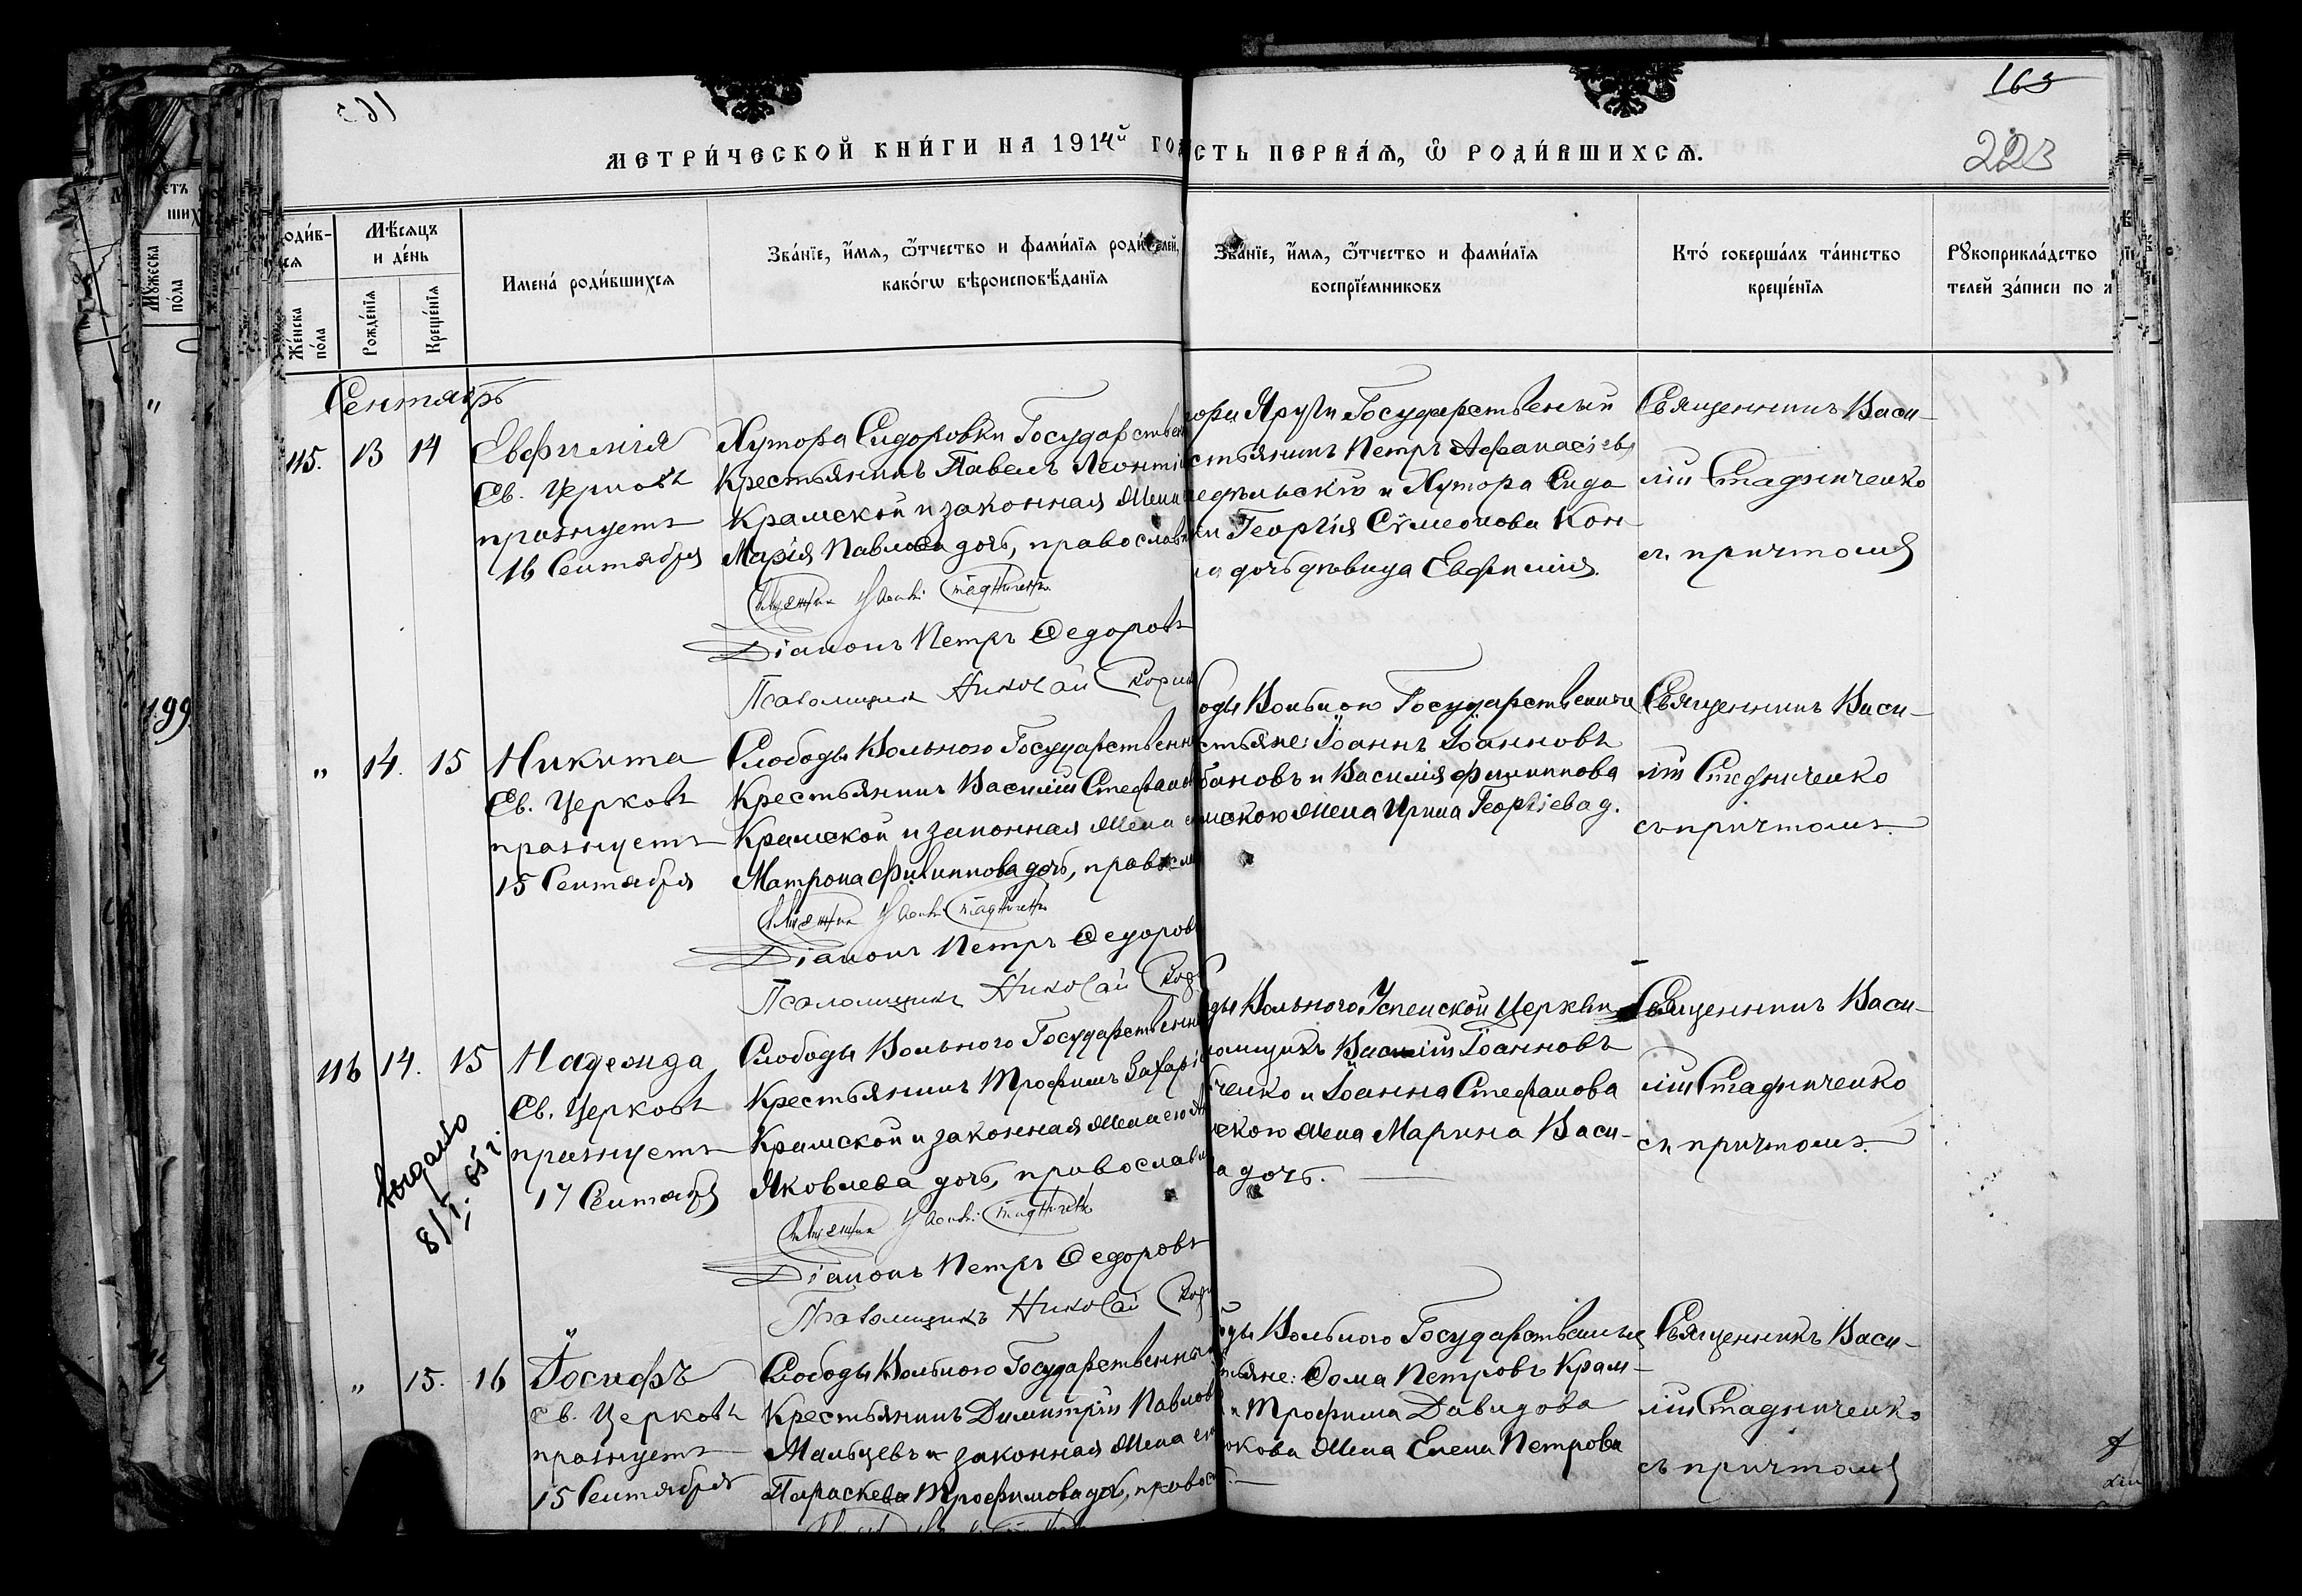 163
223
МЕТРИ́ЧЕСКОЙ КНИ́ГИ НА 1914й ГОД
СТЬ ПЕРВА́Ѧ, Ѿ РОДИ́ВШИХСѦ.
оди́в-
сѧ
Же́нска по́ла
Мѣ́сѧцъ и де́нь
Рожде́нїѧ
Креще́нїѧ
Имена̀ роди́вшихсѧ
Зва́нїе, и́мѧ, ѻ҆́тчество и фами́лїѧ роди́телей,
како́гѡ вѣроисповѣ́данїѧ
Зва́нїе, и́мѧ, ѻ҆́тчество и фами́лїѧ
воспрїе́мниковъ
Кто̀ соверша́лъ та́инство
креще́нїѧ
Рꙋкоприкла́дство
телей за́писи по
Мꙋ́жеска по́ла
199
Сентябрь
115. 13 14
Евфимія
Св. Церковь
празнуетъ
16 Сентября
Хутора Сидоровки Государствен
Крестьянинъ Павелъ Леонтіе
Крамской и законная жена
Марія Павлова дочь, православн
Священник Василій Стадниченко
Діаконъ Петръ Ѳедоровъ
Псаломщикъ Николай
гори Яруги Государственый
стьянинъ Петръ Афанасіевъ
и Хутора Сидо
ки Георгія Сѵмеонова Кон
дочь дѣвица Евфимія.
Священникъ Васи-
лій Стадниченко
съ причтомъ
" 14. 15
Никита
Св. Церковь
празнуетъ
15 Сентября
Слободы Вольного Государственн
Крестьянинъ Василій Стефано
Крамской и законная жена
Матрона Филиппова дочь, правосл
Священник Василій Стадниченко
Діаконъ Петръ Ѳедоров
Псаломщикъ Николай
оды Вольного Государственные
стьяне: Іоаннъ Іоанновъ
бановъ и Василія Филиппова
мского жена Ирина Георгіева д.
Священникъ Васи-
лій Стадниченко
съ причтомъ.
116 14. 15
Надежда
Св. Церковь
празнуетъ
17 Сентябр
выдано
8/I. 65 г.
Слободы Вольного Государственн
Крестьянинъ Трофимъ Захарі
Крамской и законная жена его
Яковлева дочь, православн
Священник Василій Стадниченко
Діаконъ Петръ Ѳедоровъ
Псаломщикъ Николай
ды Вольного Успенской Церкви
ломщикъ Василій Іоанновъ
ченко и Іоанна Стефанова
ского жена Марина Васи-
а дочь.
Священникъ Васи-
лій Стадниченко
съ причтомъ.
" 15. 16
Іосифъ
Св. Церковь
празнуетъ
15 Сентября
Слободы Вольного Государственный
Крестьянинъ Димитрій Павлов
Мальцевъ и законная жена его
Параскева Трофимова доч, правос
оды Вольного Государственные
тьяне: Ѳома Петровъ Крам-
и Трофима Давидова
юкова жена Елена Петрова
Священникъ Васи-
лій Стадниченко
съ причтомъ